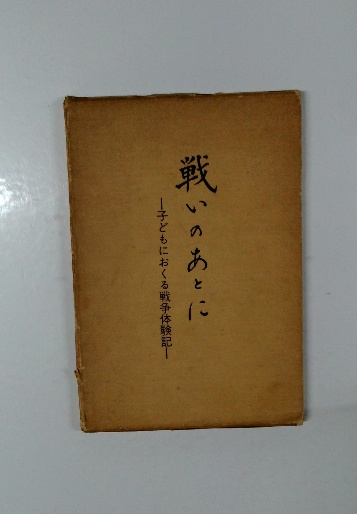 戦いのあとに
―子どもにおくる戦争体験記―